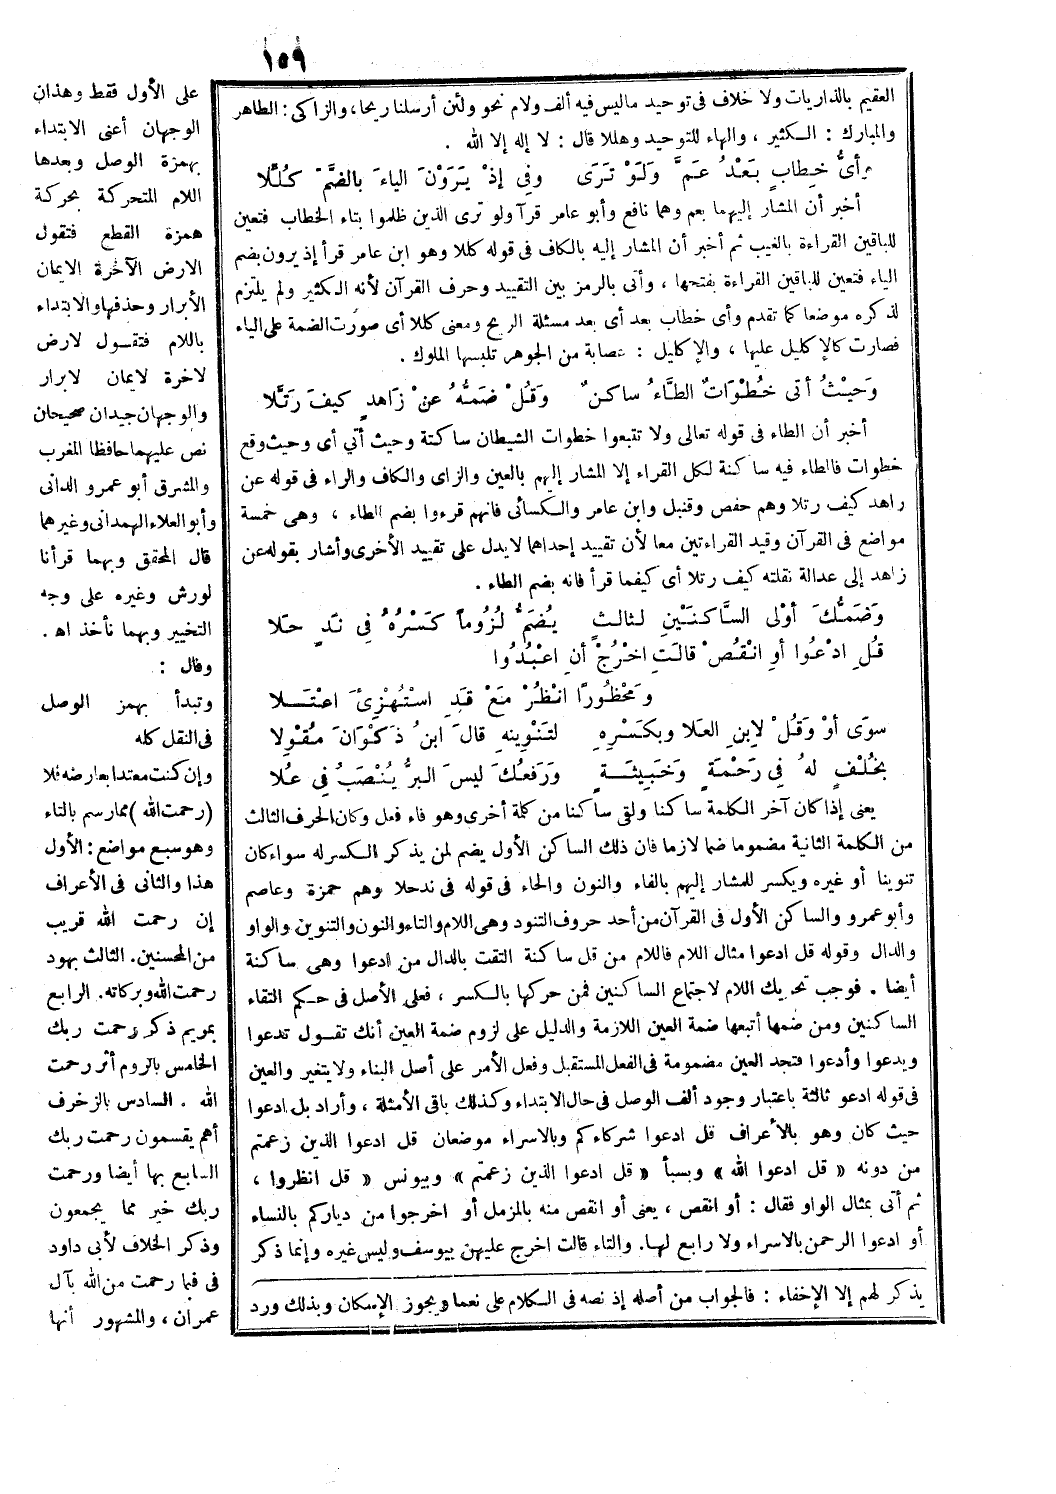 ١٥٩
العقيم بالذاريات ولا خلاف فى توحيد ماليس فيه ألف ولام نحو ولئن أرسلنا ريحا، والزاكى : الطاهر
والمبارك : الكثير ، والهاء للتوحيد وهللا قال : لا إله إلا الله .
وَأىُّ خِطابٍ بَعْدُ عَمَّ وَلَوْ تَرَى وفِى إذْ يَرَوْنَ الياءَ بالضَّمّ كُلِّلَا
أخبر أن المشار إليهما بعم وهما نافع وأبو عامر قرآ ولو ترى الذين ظلموا بتاء الخطاب فتعين
للباقين القراءة بالغيب ثم أخبر أن المشار إليه بالكاف فى قوله كللا وهو ابن عامر قرأ إذ يرون بضم
الياء فتعين للباقين القراءة بفتحها ، وأتى بالرمز بين التقييد وحرف القرآن لأنه الكثير ولم يلتزم
لذكره موضعا كما تقدم وأى خطاب بعد أى بعد مسئلة الريح ومعنى كللا أى صورت الضمة على الياء
فصارت كالإكليل عليها ، والإكليل : عصابة من الجوهر تلبسها الملوك .
وَحَيْثُ أتى خُطْوَاتٌ الطَّاءُ ساكنٌ وَقُلْ ضَمُّهُ عنْ زَاهدٍ كيفَ رَتَّلا
أخبر أن الطاء فى قوله تعالى ولا تتبعوا خطوات الشيطان ساكنة وحيث أتى أى وحيث وقع
خطوات فالطاء فيه ساكنة لكل القراء إلا المشار إليهم بالعين والزاى والكاف والراء فى قوله عن
زاهد كيف رتلا وهم حفص وقنبل وابن عامر والكسائى فانهم قرءوا بضم الطاء ، وهى خمسة
مواضع فى القرآن وقيد القراءتين معا لأن تقييد إحداهما لا يدل على تقييد الأخرى وأشار بقوله عن
زاهد إلى عدالة نقلته كيف رتلا أى كيفما قرأ فانه بضم الطاء .
وَضَمُّكَ أوْلى السَّاكنَيْنِ لثالثٍ يُضَمُّ لُزُوماً كَسْرُهُ فِى نَدٍ حَلا
قُلِ ادْعُوا أوِ انْقُصْ قالَتِ اخْرُجْ أنِ اعْبُدُوا
وَمَحْظُورًا انْظُرْ مَعْ قَدِ اسْتُهْزِئَ اعْتَلا
سوَى أوْ وَقُلْ لابنِ العَلا وبكَسْرِهِ لتَنْوِينهِ قالَ ابنُ ذَكْوَانَ مُقْوِلا
بخُلْفٍ لهُ فِى رَحْمَةٍ وَخَبِيثَةٍ وَرَفعُكَ ليسَ البرُّ يُنْصَبُ فِى عُلا
يعنى إذا كان آخر الكلمة ساكنا ولقى ساكنا من كلمة أخرى وهو فاء فعل وكان الحرف الثالث
من الكلمة الثانية مضموما ضما لازما فان ذلك الساكن الأول يضم لمن يذكر الكسر له سواء كان
تنوينا أو غيره ويكسر للمشار إليهم بالفاء والنون والحاء فى قوله فى ند حلا وهم حمزة وعاصم
وأبو عمرو والساكن الأول فى القرآن من أحد حروف التنود وهى اللام والتاء والنون والتنوين والواو
والدال وقوله قل ادعوا مثال اللام فاللام من قل ساكنة التقت بالدال من ادعوا وهى ساكنة
أيضا . فوجب تحريك اللام لاجتماع الساكنين فمن حركها بالكسر ، فعلى الأصل فى حكم التقاء
الساكنين ومن ضمها أتبعها ضمة العين اللازمة والدليل على لزوم ضمة العين أنك تقول تدعوا
ويدعوا وأدعوا فتجد العين مضمومة فى الفعل المستقبل وفعل الأمر على أصل البناء ولا يتغير والعين
فى قوله ادعو ثالثة باعتبار وجود ألف الوصل فى حال الابتداء وكذلك باقى الأمثلة ، وأراد بل ادعوا
حيث كان وهو بالأعراف قل ادعوا شركاءكم وبالاسراء موضعان قل ادعوا الذين زعمتم
من دونه « قل ادعوا الله » وبسبأ « قل ادعوا الذين زعمتم » وبيونس « قل انظروا ،
ثم أتى بمثال الواو فقال : أو انقص ، يعنى أو انقص منه بالمزمل أو اخرجوا من دياركم بالنساء
أو ادعوا الرحمن بالاسراء ولا رابع لها. والتاء قالت اخرج عليهن بيوسف وليس غيره وإنما ذكر
يذكر لهم إلا الإخفاء : فالجواب من أصله إذ نصه فى الكلام على نعما ويجوز الإسكان وبذلك ورد
على الأول فقط وهذان
الوجهان أعنى الابتداء
بهمزة الوصل وبعدها
اللام المتحركة بحركة
همزة القطع فتقول
الارض الآخرة الايمان
الأبرار وحذفها والابتداء
باللام فتقول لارض
لاخرة لايمان لابرار
والوجهان جيدان صحيحان
نص عليهما حافظا المغرب
والمشرق أبو عمرو الدانى
وأبو العلاء الهمدانى وغيرهما
قال المحقق وبهما قرأنا
لورش وغيره على وجه
التخيير وبهما نأخذ اه .
وقال :
وتبدأ بهمز الوصل
فى النقل كله
وإن كنت معتدا بعارضه فلا
(رحمت الله) مما رسم بالتاء
وهو سبع مواضع : الأول
هذا والثانى فى الأعراف
إن رحمت الله قريب
من المحسنين. الثالث بهود
رحمت الله وبركاته. الرابع
بمريم ذكر رحمت ربك
الخامس بالروم أثر رحمت
الله . السادس بالزخرف
أهم يقسمون رحمت ربك
السابع بها أيضا ورحمت
ربك خير مما يجمعون
وذكر الخلاف لأبى داود
فى فبما رحمت من الله بآل
عمران ، والمشهور أنها